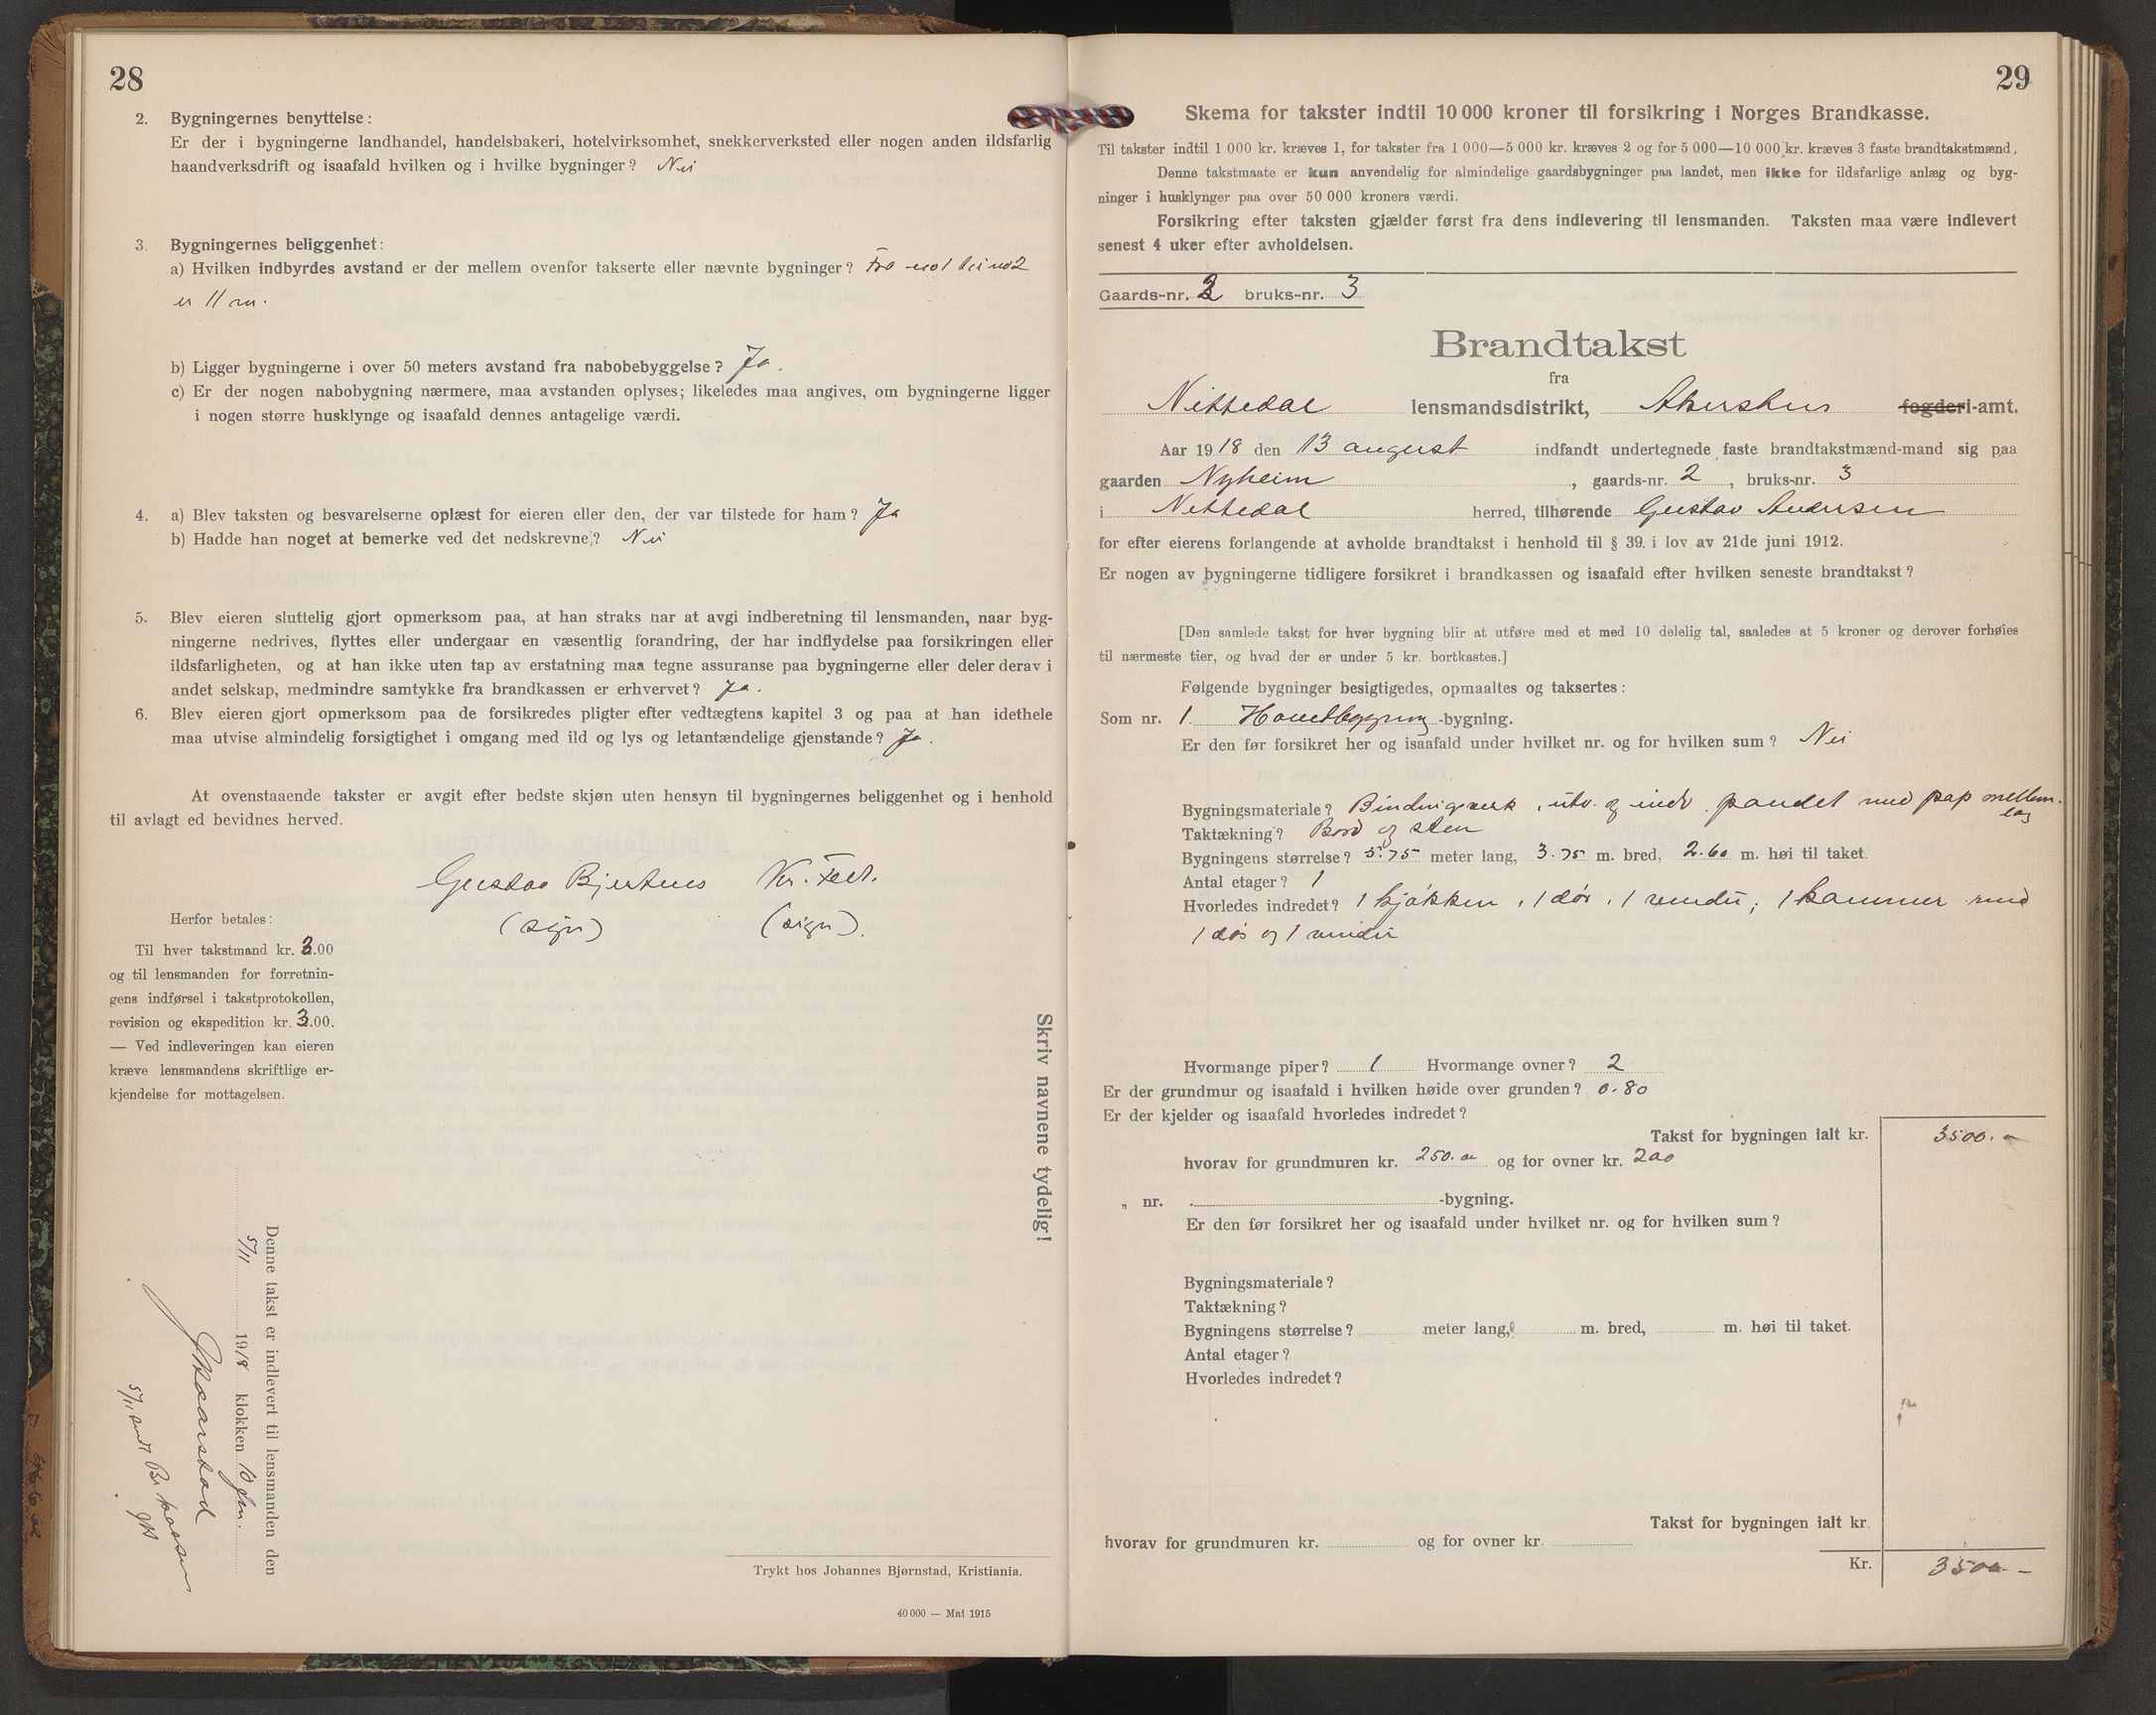 28
2. Bygningernes benyttelse:
Er der i bygningerne landhandel, handelsbakeri, hotelvirksomhet, snekkerverksted eller nogen anden ildsfarlig
haandverksdrift og isaafald hvilken og i hvilke bygninger? Nei
3. Bygningernes beliggenhet:
a) Hvilken indbyrdes avstand er der mellem ovenfor takserte eller nævnte bygninger? Fra no 1 til no 2
er 11 m.
b) Ligger bygningerne i over 50 meters avstand fra nabobebyggelse? Ja.
c) Er der nogen nabobygning nærmere, maa avstanden oplyses; likeledes maa angives, om bygningerne ligger
i nogen større husklynge og isaafald dennes antagelige værdi.
4. a) Blev taksten og besvarelserne oplæst for eieren eller den, der var tilstede for ham? Ja
b) Hadde han noget at bemerke ved det nedskrevne? Nei
5. Blev eieren sluttelig gjort opmerksom paa, at han straks har at avgi indberetning til lensmanden, naar byg-
ningerne nedrives, flyttes eller undergaar en væsentlig forandring, der har indflydelse paa forsikringen eller
ildsfarligheten, og at han ikke uten tap av erstatning maa tegne assuranse paa bygningerne eller deler derav i
andet selskap, medmindre samtykke fra brandkassen er erhvervet? Ja.
6. Blev eieren gjort opmerksom paa de forsikredes pligter efter vedtægtens kapitel 3 og paa at han idethele
maa utvise almindelig forsigtighet i omgang med ild og lys og letantændelige gjenstande? Ja.
At ovenstaaende takster er avgit efter bedste skjøn uten hensyn til bygningernes beliggenhet og i henhold
til avlagt ed bevidnes herved.
Gustav Bjertnes Kr.
(sign) (sign).
Herfor betales:
Til hver takstmand kr. 3.00
og til lensmanden for forretnin-
gens indførsel i takstprotokollen,
revision og ekspedition kr. 3.00.
— Ved indleveringen kan eieren
kræve lensmandens skriftlige er-
kjendelse for mottagelsen.
Skriv navnene tydelig!
Denne takst er indlevert til lensmanden den
5/11 1918 klokken 10 fm.
5/11 sendt Br.kassen
Trykt hos Johannes Bjørnstad, Kristiania.
40 000 — Mai 1915
29
Skema for takster indtil 10 000 kroner til forsikring i Norges Brandkasse.
Til takster indtil 1 000 kr. kræves 1, for takster fra 1 000—5 000 kr. kræves 2 og for 5 000—10 000 kr. kræves 3 faste brandtakstmænd,
Denne takstmaate er kun anvendelig for almindelige gaardsbygninger paa landet, men ikke for ildsfarlige anlæg og byg-
ninger i husklynger paa over 50 000 kroners værdi.
Forsikring efter taksten gjælder først fra dens indlevering til lensmanden. Taksten maa være indlevert
senest 4 uker efter avholdelsen.
Gaards-nr. 2 bruks-nr. 3
Brandtakst
fra
Nittedal lensmandsdistrikt, Akershus fogderi-amt.
Aar 1918 den 13 august indfandt undertegnede faste brandtakstmænd-mand sig paa
gaarden Nyheim, gaards-nr. 2, bruks-nr. 3
i Nittedal herred, tilhørende Gustav Andersen
for efter eierens forlangende at avholde brandtakst i henhold til § 39. i lov av 21de juni 1912.
Er nogen av bygningerne tidligere forsikret i brandkassen og isaafald efter hvilken seneste brandtakst?
[Den samlede takst for hver bygning blir at utføre med et med 10 delelig tal, saaledes at 5 kroner og derover forhøies
til nærmeste tier, og hvad der er under 5 kr. bortkastes.]
Følgende bygninger besigtigedes, opmaaltes og taksertes:
Som nr. 1. Hovedbygning -bygning.
Er den før forsikret her og isaafald under hvilket nr. og for hvilken sum? Nei
Bygningsmateriale? Bindingsverk, utv. og indv. panelet med pap mellem-
lag
Taktækning? Bord og sten
Bygningens størrelse? 5.75 meter lang, 3.75 m. bred, 2.60 m. høi til taket.
Antal etager? 1
Hvorledes indredet? 1 kjøkken, 1 dør, 1 vindu; 1 kammer med
1 dør og 1 vindu
Hvormange piper? 1 Hvormange ovner? 2
Er der grundmur og isaafald i hvilken høide over grunden? 0.80
Er der kjelder og isaafald hvorledes indredet?
Takst for bygningen ialt kr. 3500.-
hvorav for grundmuren kr. 250.00 og for ovner kr. 200
„ nr. -bygning.
Er den før forsikret her og isaafald under hvilket nr. og for hvilken sum?
Bygningsmateriale?
Taktækning?
Bygningens størrelse? meter lang, m. bred, m. høi til taket.
Antal etager?
Hvorledes indredet?
Takst for bygningen ialt kr.
hvorav for grundmuren kr. og for ovner kr.
Kr. 3500.-